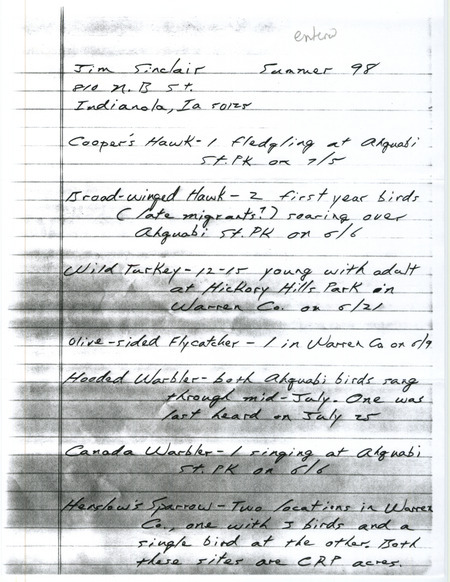 enter
Jim Sinclair Summer 98
810 N. B St.
Indianola, Ia 50125
Cooper's Hawk - 1 fledgling at Ahquabi
St. Pk on 7/5
Broad-winged Hawk - 2 first year birds
(late migrants?) soaring over
Ahquabi St. Pk on 6/6
Wild Turkey - 12-15 young with adult
at Hickory Hills Park in
Warren Co. on 6/21
Olive-sided Flycatcher - 1 in Warren Co on
Hooded Warbler - both Ahquabi birds sang
through mid-July. One was
last heard on July 25
Canada Warbler - 1 singing at Ahquabi
St. Pk on 6/6
Henslow's Sparrow - Two locations in Warren
Co., one with 3 birds and a
single bird at the other. Both
these sites are CRP acres.